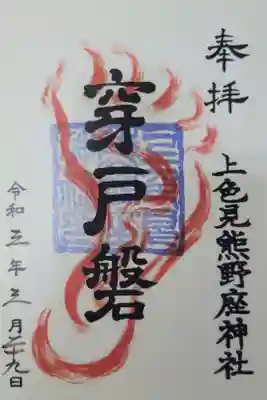 奉拝
上色見熊野座神社
穿戸磐
令和三年三月二十九日